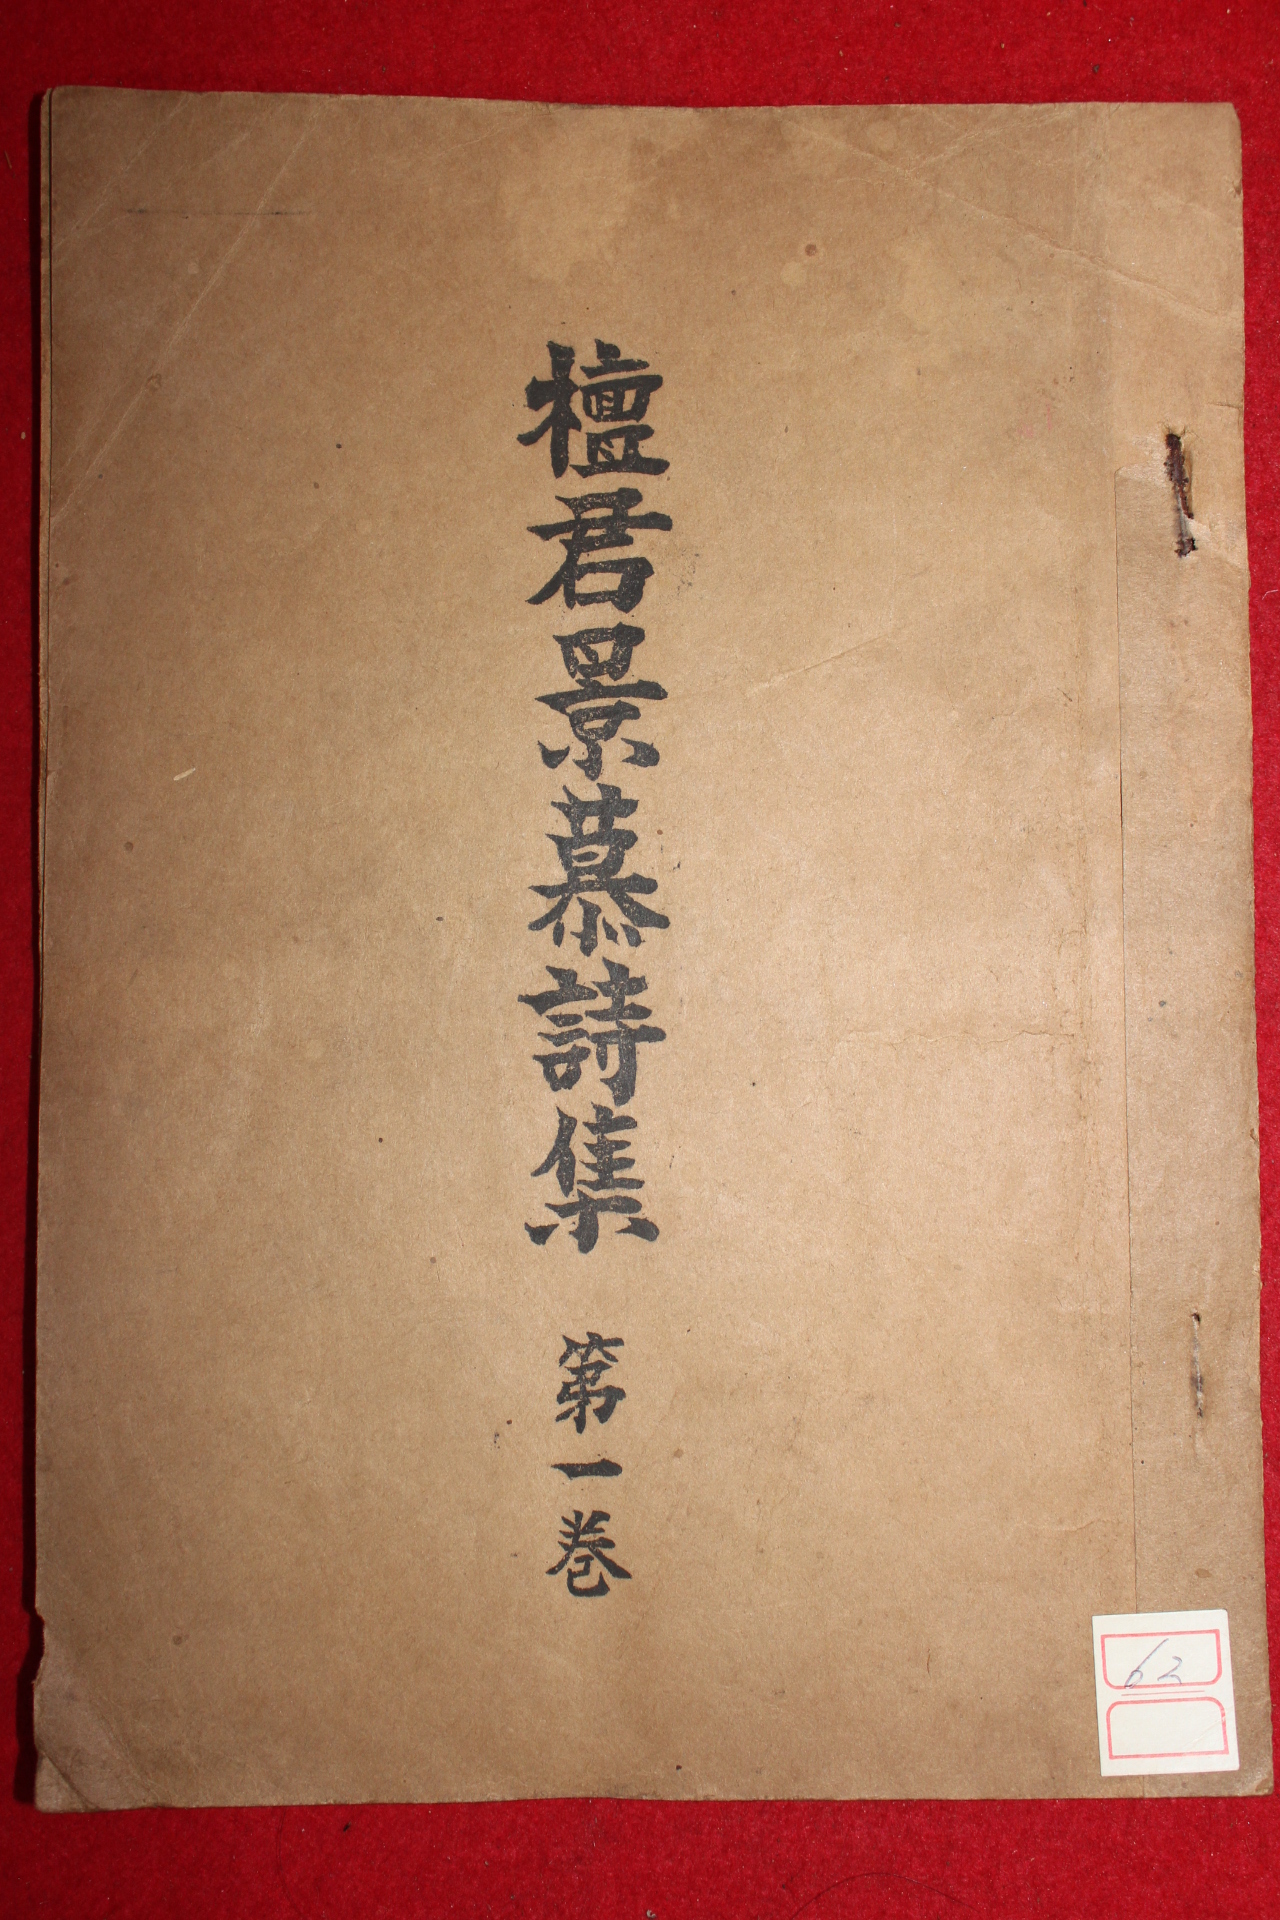 檀君景慕詩集 第一卷
62